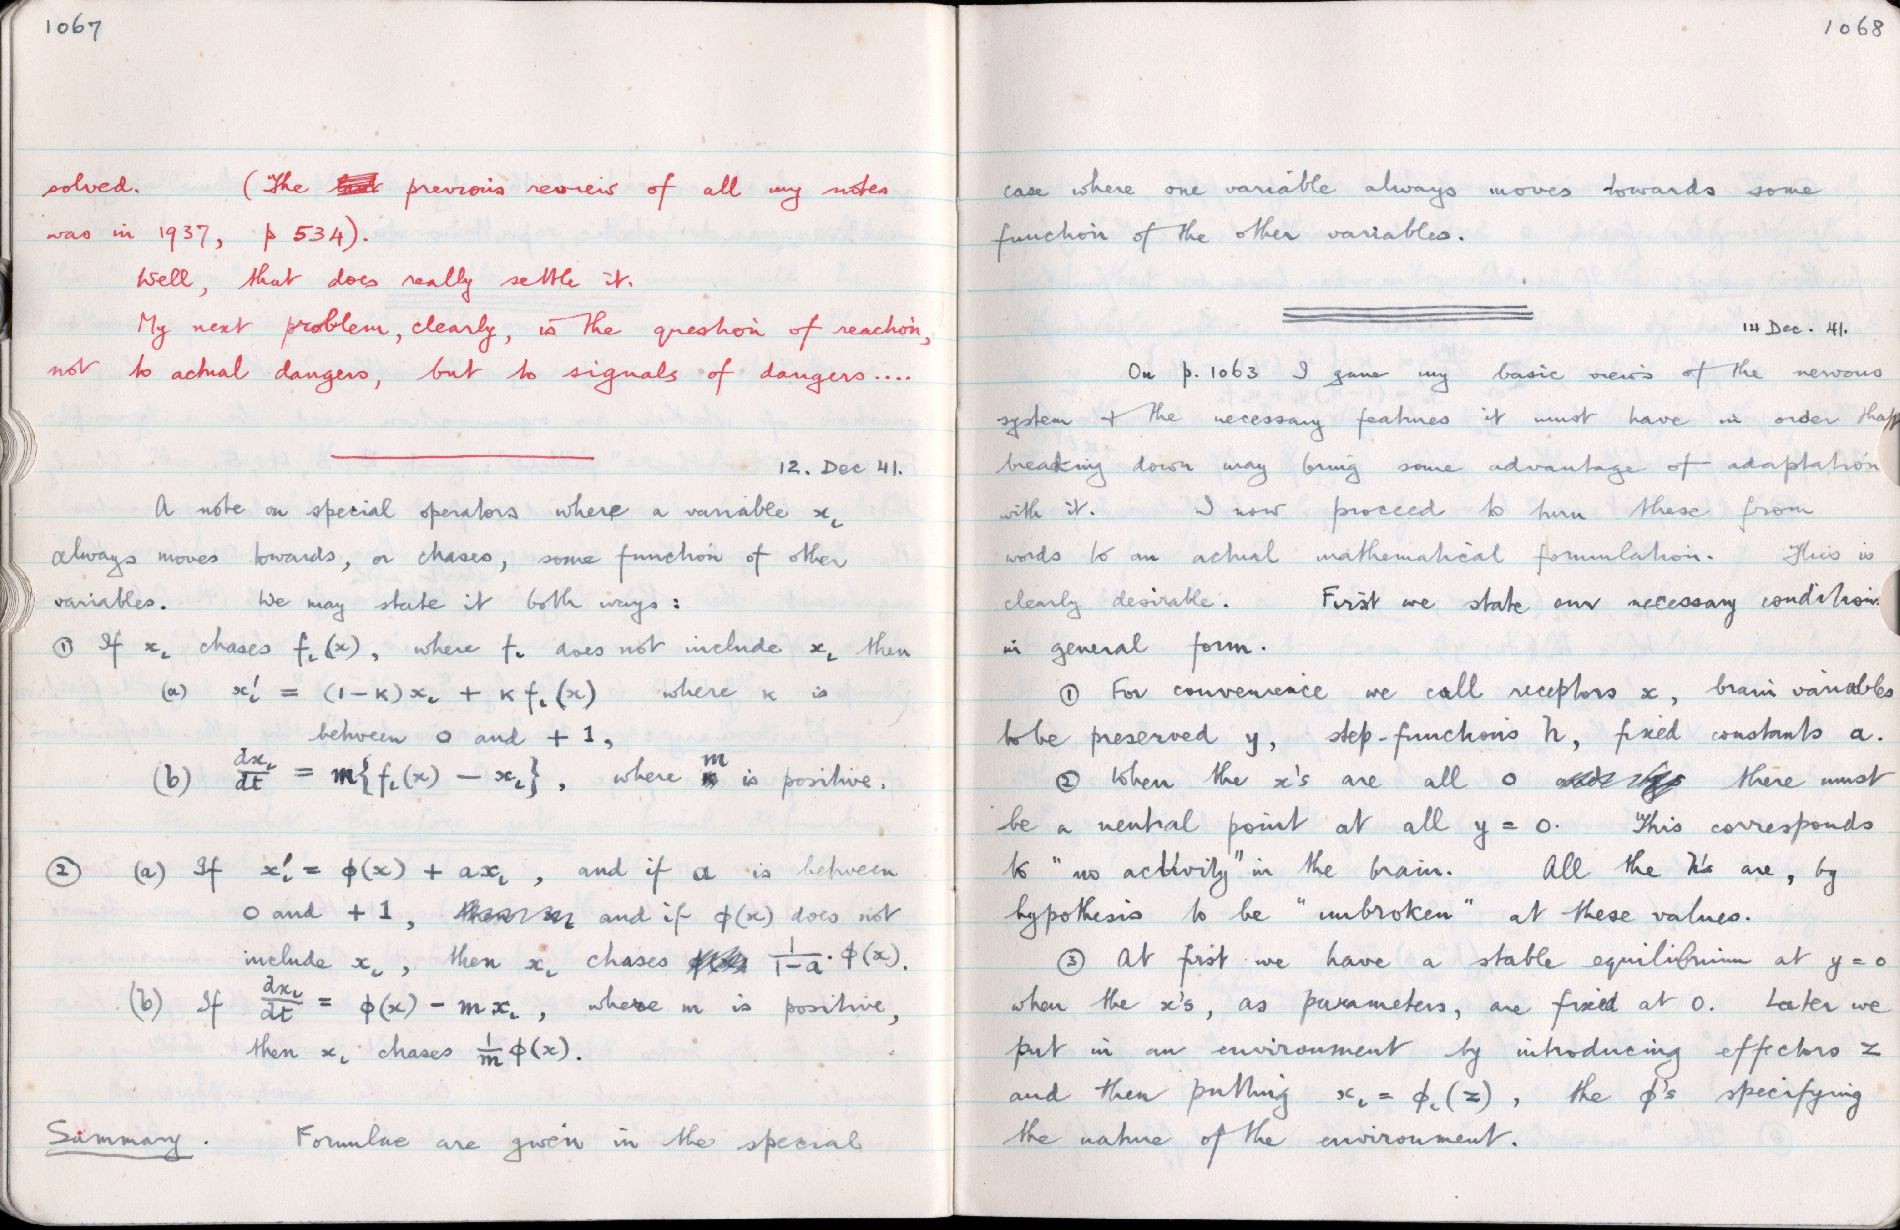 1067
solved. (The previous review of all my notes
was in 1937, p 534).
Well, that does really settle it.
My next problem, clearly, is the question of reaction,
not to actual dangers, but to signals of dangers....
12. Dec 41.
A note on special operators where a variable xᵢ
always moves towards, or chases, some function of other
variables. We may state it both ways:
① If xᵢ chases fᵢ(x), where fᵢ does not include xᵢ then
(a) xᵢ' = (1-K)xᵢ + K fᵢ(x) where K is
between 0 and +1,
(b) dxᵢ/dt = m{fᵢ(x) - xᵢ}, where m is positive.
② (a) If xᵢ' = φ(x) + axᵢ, and if a is between
0 and +1, and if φ(x) does not
include xᵢ, then xᵢ chases 1/(1-a)·φ(x).
(b) If dxᵢ/dt = φ(x) - mxᵢ, where m is positive,
then xᵢ chases 1/m φ(x).
Summary. Formulae are given in the special
1068
case where one variable always moves towards some
function of the other variables.
14 Dec. 41.
On p. 1063 I gave my basic views of the nervous
system + the necessary features it must have in order that
breaking down may bring some advantage of adaptation
with it. I now proceed to turn these from
words to an actual mathematical formulation. This is
clearly desirable. First we state our necessary conditions
in general form.
① For convenience we call receptors x, brain variables
to be preserved y, step-functions h, fixed constants a.
② When the x's are all 0 there must
be a neutral point at all y = 0. This corresponds
to "no activity" in the brain. All the h's are, by
hypothesis to be "unbroken" at these values.
③ At first we have a stable equilibrium at y = 0
when the x's, as parameters, are fixed at 0. Later we
put in an environment by introducing effectors z
and then putting xᵢ = φᵢ(z), the φ's specifying
the nature of the environment.